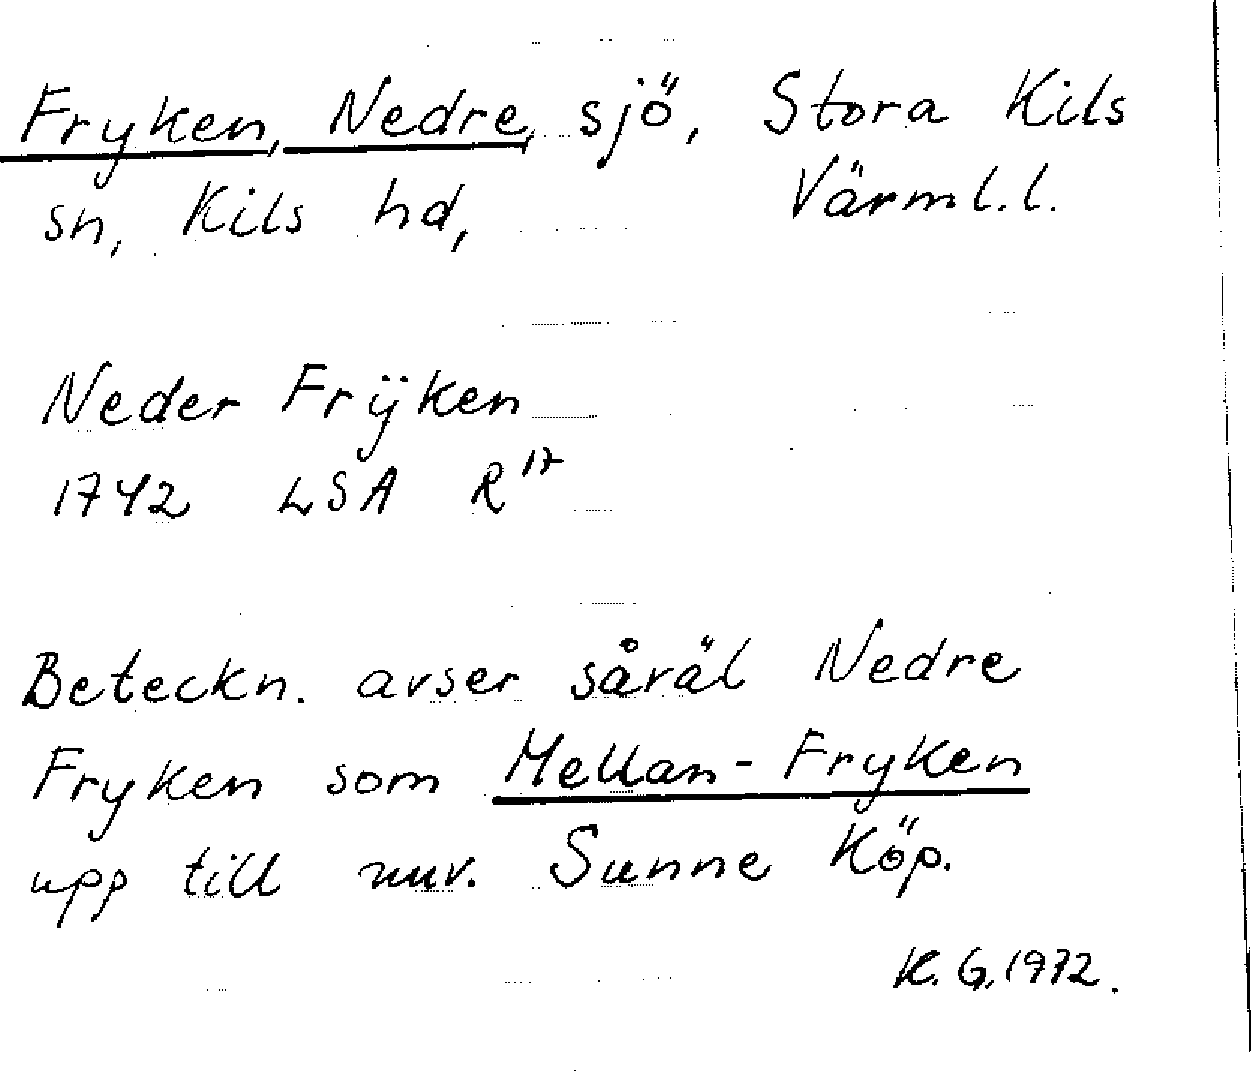 Fryken, Nedre, sjö, Stora Kils
sn, Kils hd, Värml.l.
Neder Frÿken
1742 LSA R¹⁷
Beteckn. avser såväl Nedre
Fryken som Mellan-Fryken
upp till nuv. Sunne Köp.
K.G. 1972.